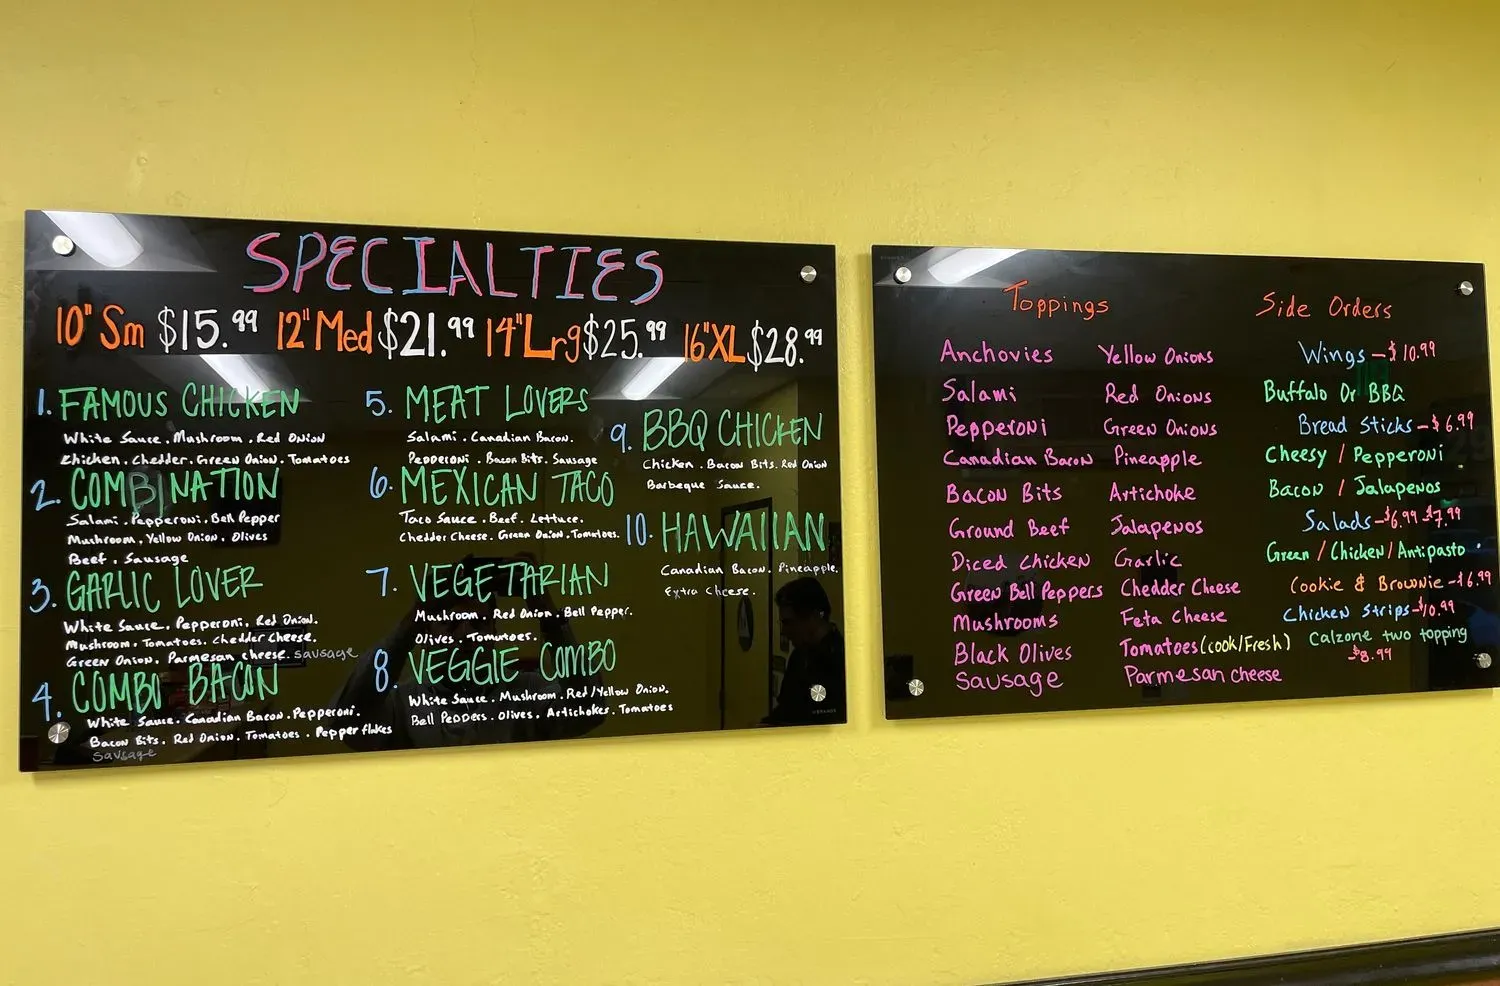 SPECIALTIES
10" Sm $15.99 12" Med $21.99 14" Lrg $25.99 16" XL $28.99
1. FAMOUS CHICKEN
White Sauce. Mushroom. Red Onion
Chicken. Chedder. Green Onion. Tomatoes
2. COMBINATION
Salami. Pepperoni. Bell Pepper
Mushroom. Yellow Onion. Olives
Beef. Sausage
3. GARLIC LOVER
White Sauce. Pepperoni. Red Onion.
Mushroom. Tomatoes. Chedder Cheese.
Green Onion. Parmesan cheese. Sausage
4. COMBO BACON
White Sauce. Canadian Bacon. Pepperoni.
Bacon Bits. Red Onion. Tomatoes. Pepper flakes
Sausage
5. MEAT LOVERS
Salami. Canadian Bacon.
Pepperoni. Bacon Bits. Sausage
6. MEXICAN TACO
Taco Sauce. Beef. Lettuce.
Chedder Cheese. Green Onion. Tomatoes.
7. VEGETARIAN
Mushroom. Red Onion. Bell Pepper.
Olives. Tomutoes.
8. VEGGIE COMBO
White Sauce. Mushroom. Red/Yellow Onion.
Bell Peppers. Olives. Artichokes. Tomatoes
9. BBQ CHICKEN
Chicken. Bacon Bits. Red Onion
Barbeque Sauce.
10. HAWAIIAN
Canadian Bacon. Pineapple.
Extra Cheese.
Toppings
Anchovies
Salami
Pepperoni
Canadian Bacon
Bacon Bits
Ground Beef
Diced Chicken
Green Bell Peppers
Mushrooms
Black Olives
Sausage
Yellow Onions
Red Onions
Green Onions
Pineapple
Artichoke
Jalapenos
Garlic
Chedder Cheese
Feta Cheese
Tomatoes (cook/Fresh)
Parmesan cheese
Side Orders
Wings - $10.99
Buffalo Or BBQ
Bread Sticks - $6.99
Cheesy / Pepperoni
Bacon / Jalapenos
Salads - $6.99 - $7.99
Green / Chicken / Antipasto
Cookie & Brownie - $6.99
Chicken Strips - $10.99
Calzone two topping
- $8.99